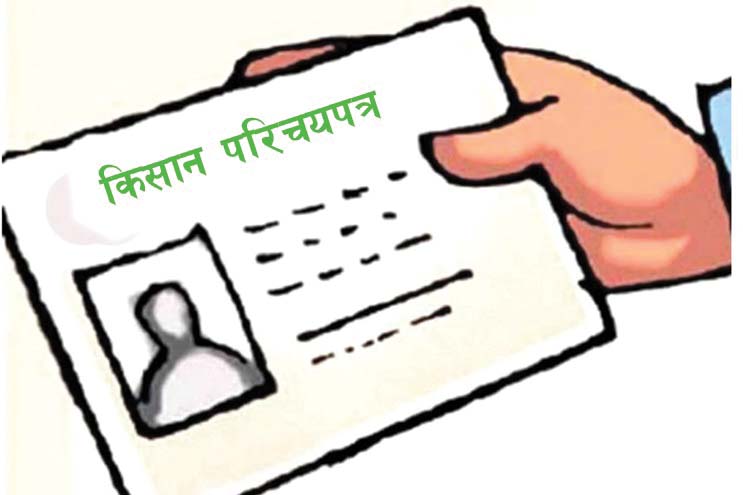 किसान परिचयपत्र